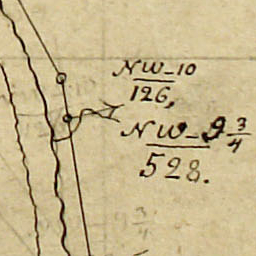 NW-10
126,
NW-9 3/4
528.